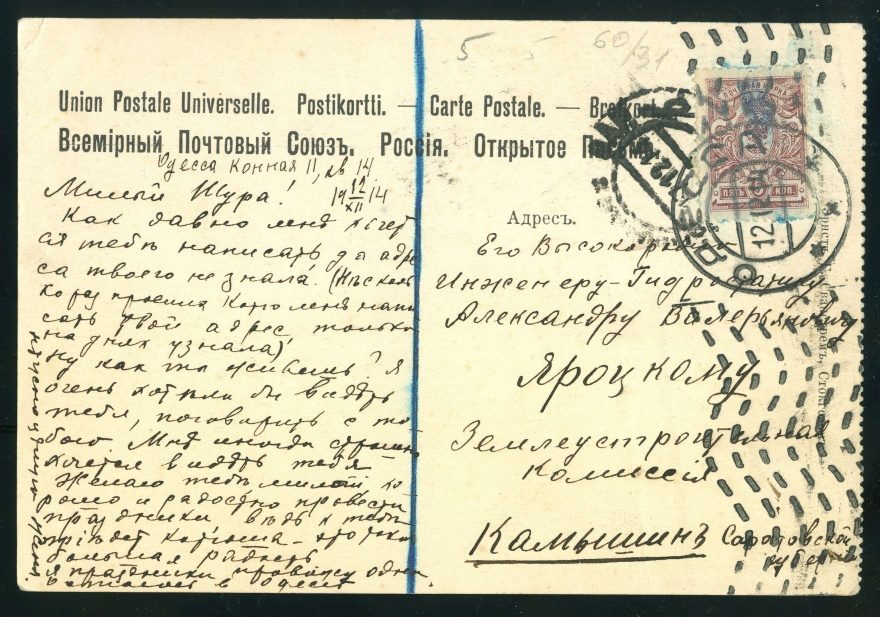 5 5 60/31
Union Postale Universelle. Postikortti. — Carte Postale. — Brefkort.
Всемірный Почтовый Союзъ. Россія. Открытое Письмо.
Одесса Конная 11, кв 14
Милый Шура! 19 12/XII 14
Какъ давно мнѣ хочет
ся тебѣ написать да адре
са твоего не знала. (Нѣсколь
ко раз просила Катю мнѣ напи
сать твой адрес только
на днях узнала)!
Ну как ты живешь? Я
очень хотѣла бы видѣть
тебя, поговорить с то
бою. Мнѣ иногда страшно
хочется видѣть тебя
Желаю тебѣ милый хо
рошо и радостно провести
праздники, вѣдь к тебѣ
пріѣдет Катюша - это
большая радость
Я праздники провожу одна
в Одессѣ
цѣлую Женя
Адресъ.
Его Высокородію
Инженеру-Гидротехнику
Александру Валерьяновичу
Яроцкому
Землеустроительная
Комиссія
Камышинъ Саратовской
губерніи
ПЯТЬ КОП.
ОДЕССА
12.12.14